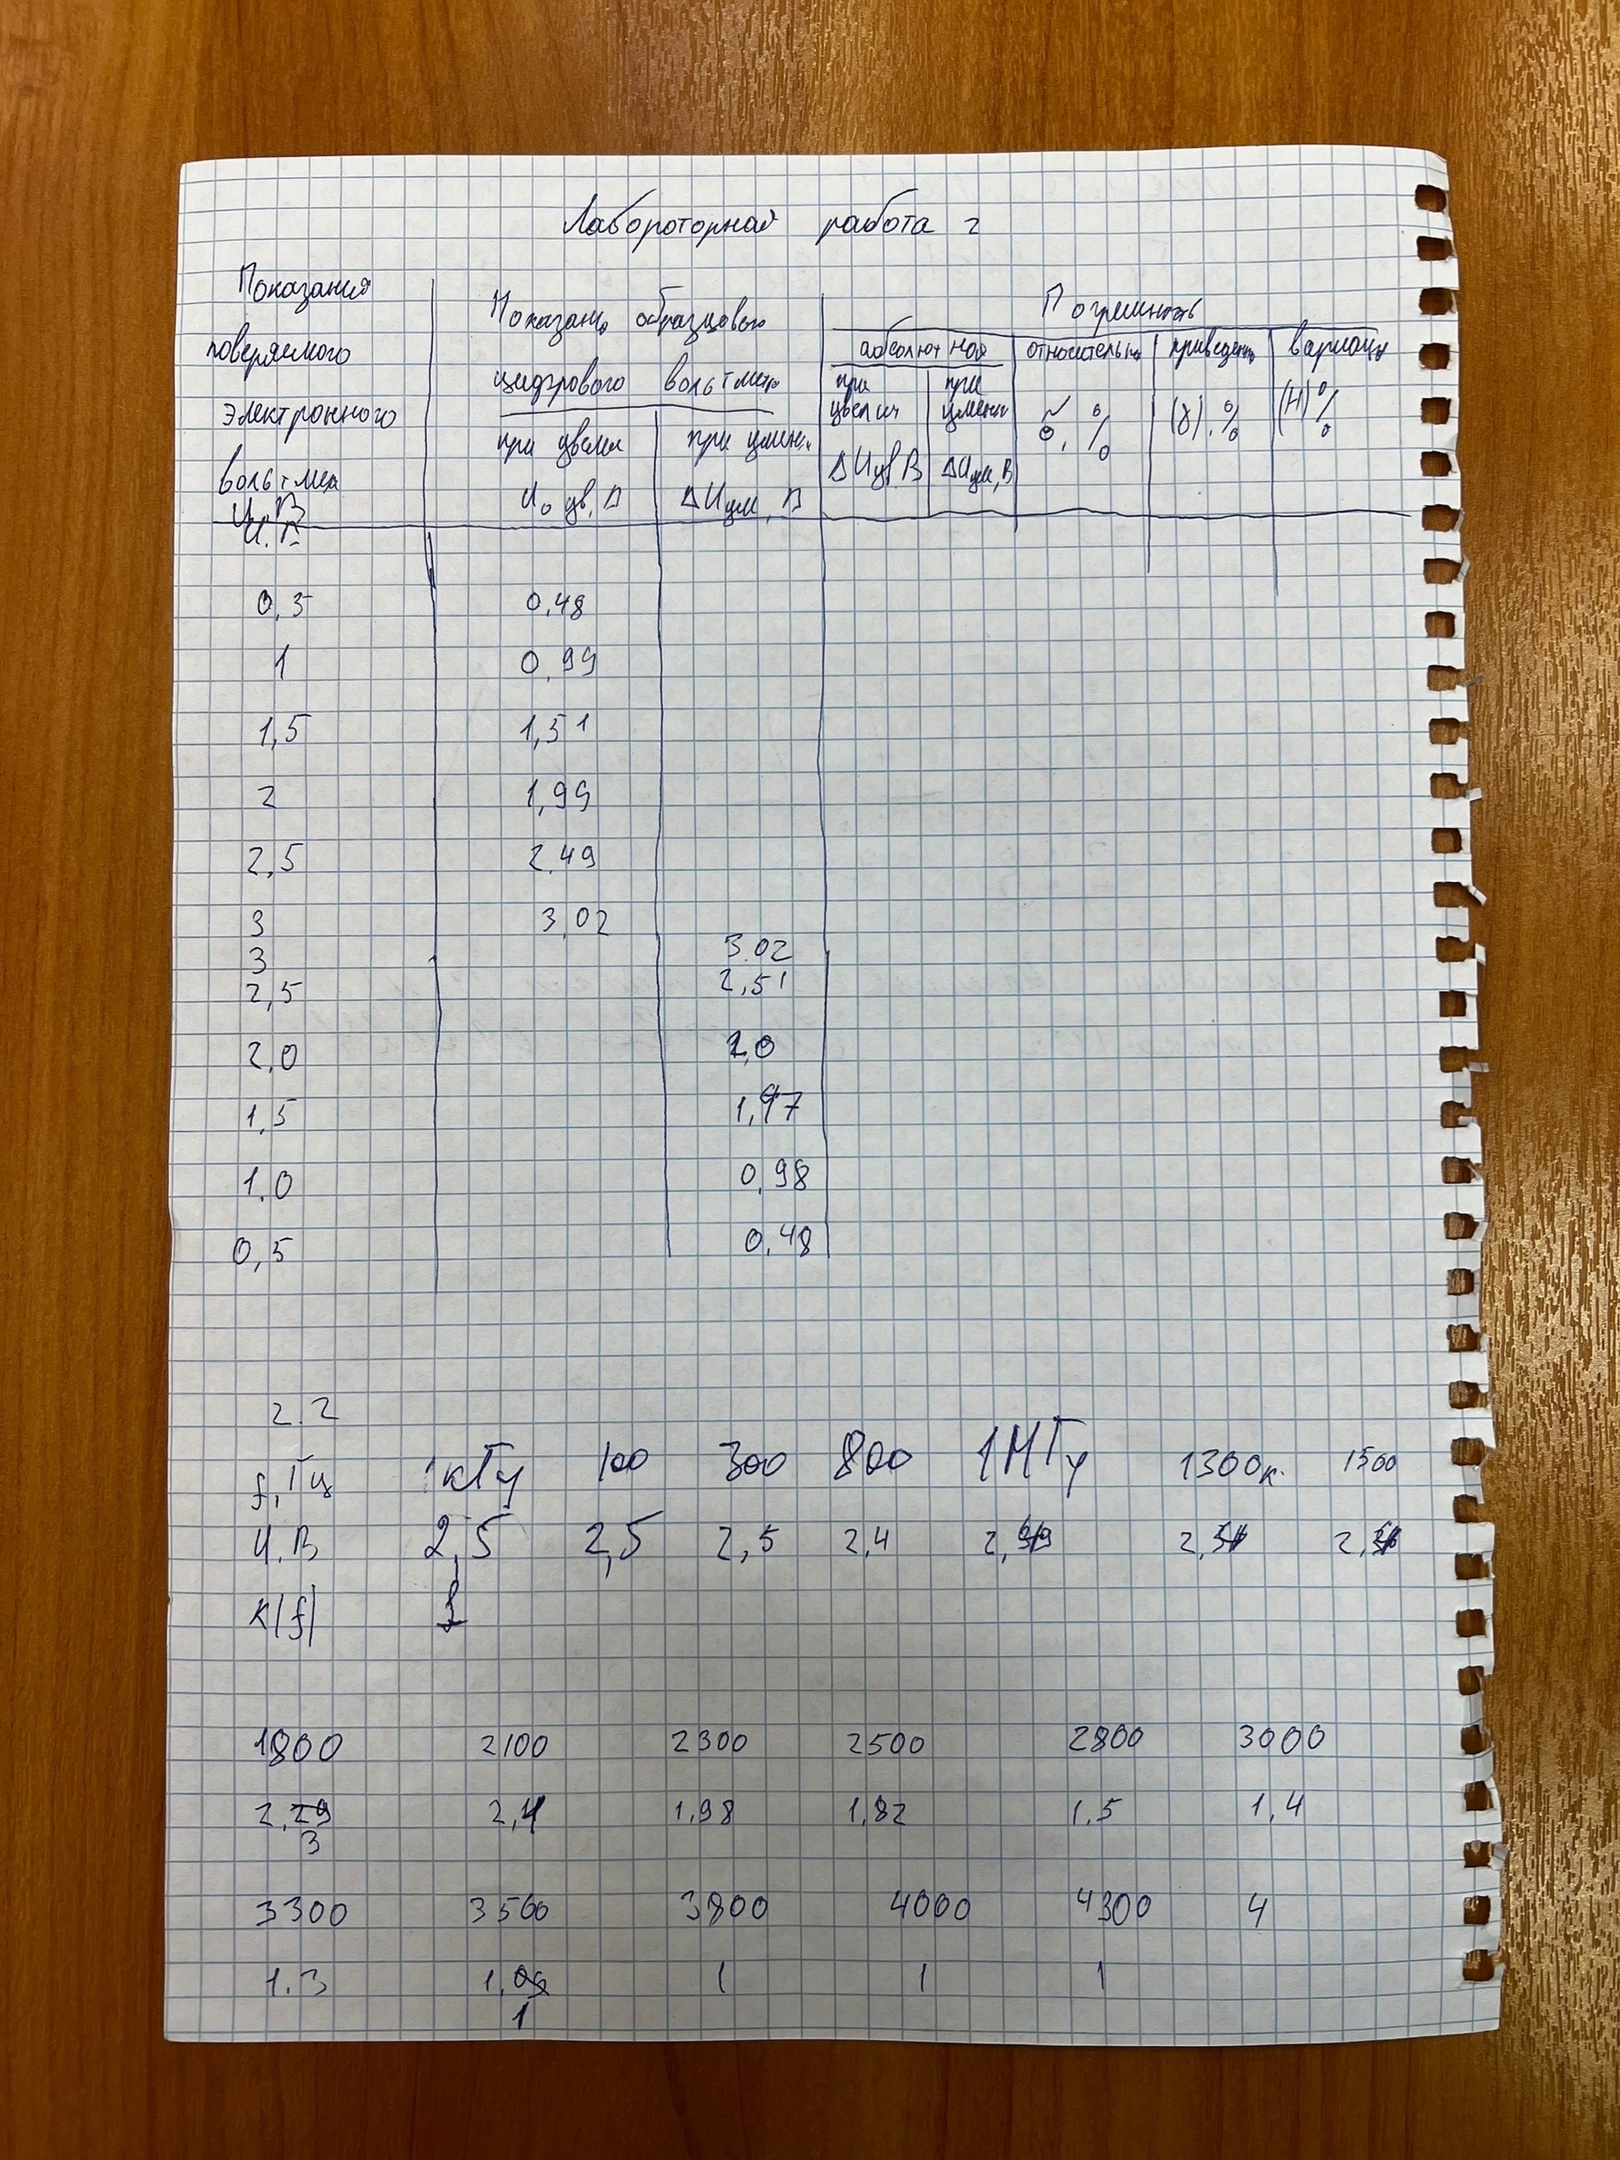 Лабороторная работа 2
Показания поверяемого электронного вольтмет U, В
U. В
Показание образцового цифрового вольтметр
при увелич U₀ ув, В
при уменьш ΔUум, В
Погрешность
абсолютная
при увелич ΔUув, В
при уменьш ΔUум, В
относительн δ, %
приведенн (γ), %
вариация (H) %
0,5 0,48
1 0,99
1,5 1,51
2 1,99
2,5 2,49
3 3,02
3 3.02
2,5 2,51
2,0 2,0
1,5 1,47
1.0 0,98
0,5 0,48
2.2
f, Гц 1кГц 100 300 800 1МГц 1300к. 1500
U.В 2,5 2,5 2,5 2,4
K(f) 1
1800 2100 2300 2500 2800 3000
2,3 2,1 1,98 1,82 1,5 1,4
3300 3500 3800 4000 4300 4
1.3 1 1 1 1